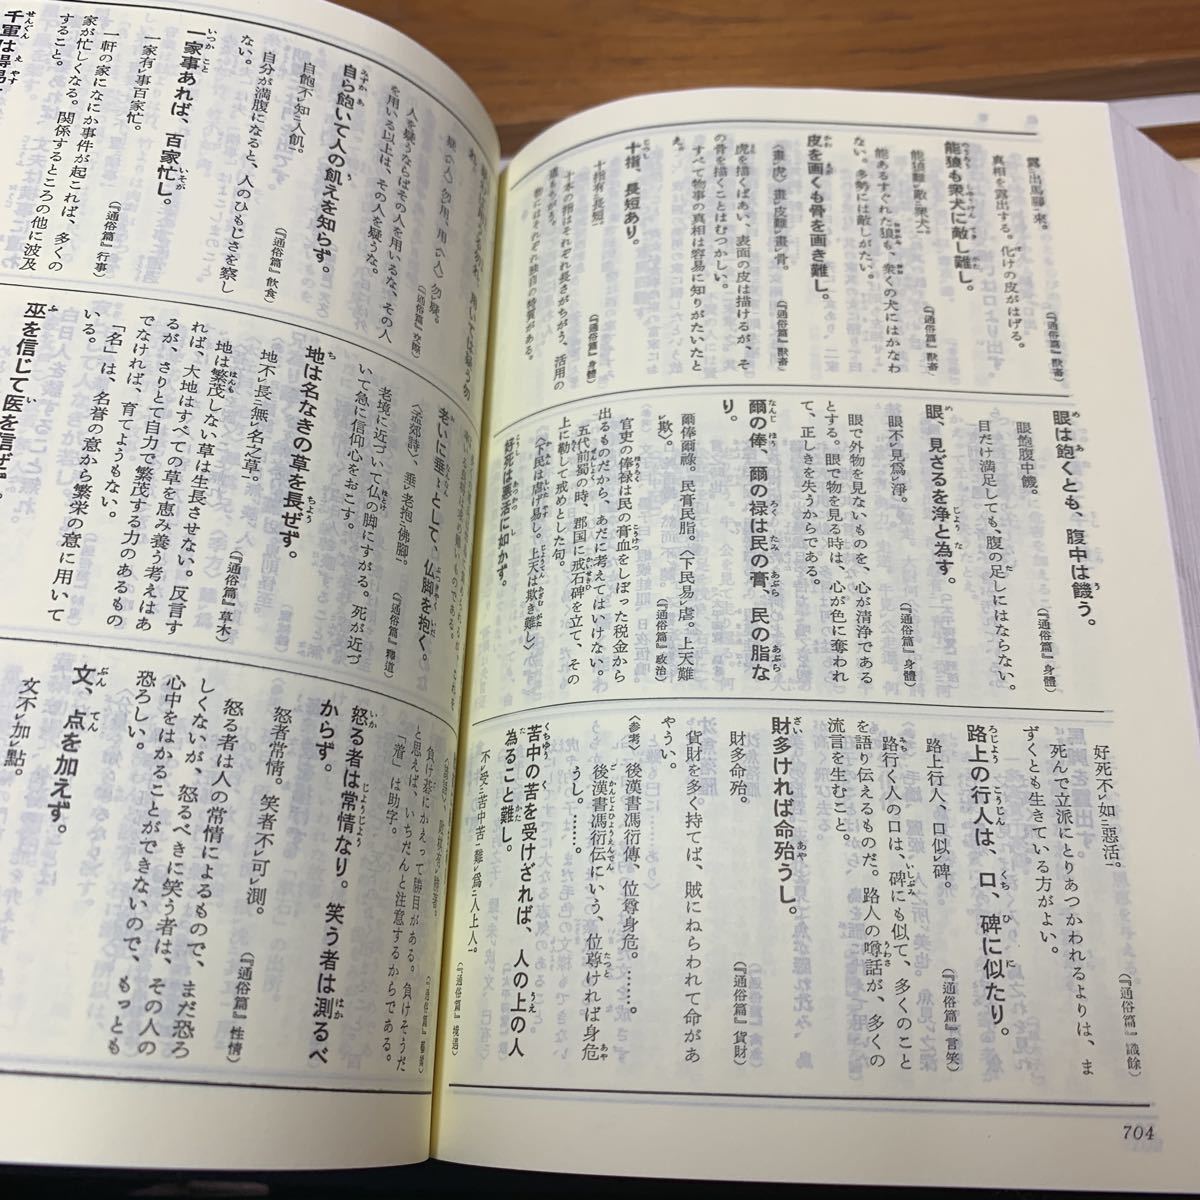 露出馬脚來。
真相を露出する。化けの皮がはげる。
(『通俗篇』獸畜)
能狼も衆犬に敵し難し。
能狼難レ敵二衆犬一。
(『通俗篇』獸畜)
能あるすぐれた狼も、衆くの犬にはかなわ
ない。多勢には敵しがたい。
皮を画くも骨を画き難し。
〈畫虎〉畫レ皮難レ畫レ骨。
(『通俗篇』獸畜)
虎を描くばあい、表面の皮は描けるが、そ
の骨を描くことはむつかしい。
すべて物事の真相は容易に知りがたいたと
え。
十指、長短あり。
十指有二長短一。
(『通俗篇』身體)
十本の指はそれぞれ長さがちがう。活用の
道もちがう。
物にはそれぞれ独自の特質がある。
眼は飽くとも、腹中は饑う。
眼飽腹中饑。
(『通俗篇』身體)
目だけ満足しても、腹の足しにはならない。
眼、見ざるを浄と為す。
眼不レ見爲レ淨。
(『通俗篇』身體)
眼で外物を見ないものを、心が清浄である
とする。眼で物を見る時は、心が色に奪われ
て、正しきを失うからである。
爾の俸、爾の禄は民の膏、民の脂な
り。
爾俸爾祿。民膏民脂。〈下民易レ虐。上天難
レ欺〉。
(『通俗篇』政治)
官吏の俸禄は民の膏血をしぼった税金から
出るものだから、あだに考えてはいけない。
五代前蜀の時、郡国に戒石碑を立て、その
上に勒して戒めとした句。
〈下民は虐げ易し。上天は欺き難し〉
好死は悪活に如かず。
好死不レ如二惡活一。
(『通俗篇』識餘)
死んで立派にとりあつかわれるよりは、ま
ずくとも生きている方がよい。
路上の行人は、口、碑に似たり。
路上行人、口似レ碑。
(『通俗篇』言笑)
路行く人の口は、碑にも似て、多くのこと
を語り伝えるものだ。路人の噂話が、多くの
流言を生むこと。
財多ければ命殆うし。
財多命殆。
(『通俗篇』貨財)
貨財を多く持てば、賊にねらわれて命があ
やうい。
〈参考〉 後漢書馮衍傳、位尊身危。……。
後漢書馮衍伝にいう、位尊ければ身危
うし。……。
苦中の苦を受けざれば、人の上の人
為ること難し。
不レ受二苦中苦一難レ爲二人上人一。
(『通俗篇』境遇)
704
人を疑うならばその人を用いるな、その人
を用いる以上は、その人を疑うな。
(『通俗篇』交際)
自ら飽いて人の飢えを知らず。
自飽不レ知二人飢一。
(『通俗篇』飲食)
自分が満腹になると、人のひもじさを察し
ない。
一家事あれば、百家忙し。
一家有レ事百家忙。
(『通俗篇』行事)
一軒の家になにか事件が起これば、多くの
家が忙しくなる。関係するところの他に波及
すること。
老いに垂として、仏脚を抱く。
〈孟郊詩〉、垂レ老抱二佛腳一。
(『通俗篇』釋道)
老境に近づいて仏の脚にすがる。死が近づ
いて急に信仰心をおこす。
地は名なきの草を長ぜず。
地不レ長二無レ名之草一。
(『通俗篇』草木)
地は繁茂しない草は生長させない。反言す
れば、大地はすべての草を恵み養う考えはあ
るが、さりとて自力で繁茂する力のあるもの
でなければ、育てようもない。
「名」は、名誉の意から繁栄の意に用いて
いる。
巫を信じて医を信ぜず。
負け碁にかえって勝目がある。負けそうだ
と思えば、いちだんと注意するからである。
「着」は助字。
怒る者は常情なり。笑う者は測るべ
からず。
怒者常情。笑者不レ可レ測。
(『通俗篇』性情)
怒る者は人の常情によるもので、まだ恐ろ
しくないが、怒るべきに笑う者は、その人の
心中をはかることができないので、もっとも
恐ろしい。
文、点を加えず。
文不レ加レ點。